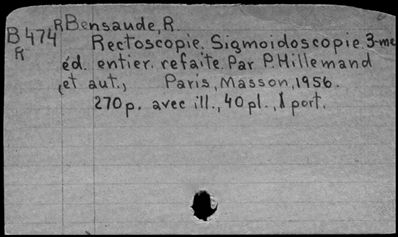 R Bensaude, R.
B 474 Rectoscopie. Sigmoidoscopie. 3-me
R
éd. entier. refaite. Par P. Hillemand
(et aut.), Paris, Masson, 1956.
270 p. avec ill., 40 pl., 1 port.